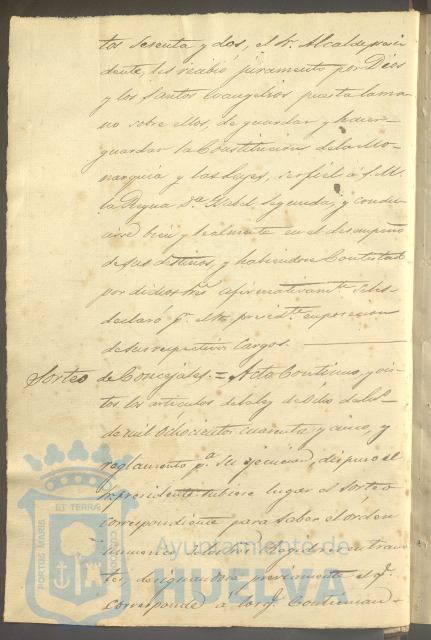 tos sesenta y dos, el Sr. Alcalde presi
dente, les recibió juramento por Dios
y los Santos evangelios puesta la ma
no sobre ellos, de guardar y hacer
guardar la Constitucion de la Mo-
narquia y las leyes, ser fiel a S. M.
la Reyna Da. Isabel Segunda, y condu
cirse bien y lealmente en el desempeño
de sus destinos, y habiendo contestado
por dichos Sres. afirmativamte. se les
declaró pr. el Sr. presidte. en posesion
de sus respectivos cargos.
Sorteo de Concejales. = Acto Continuo, y vis
tos los articulos de la ley de ocho de
de mil ochocientos cuarenta y cinco, y
reglamento pa. su ejecucion, dispuso el
Sr. presidente tubiese lugar el sorteo
correspondiente para saber el orden
numerico de los Sres. Regidores entran
tes, designandose previamente el qe.
corresponde á los qe. Continuan
PORTUS MARIS ET TERRAE CUSTODIA
Ayuntamiento de
HUELVA